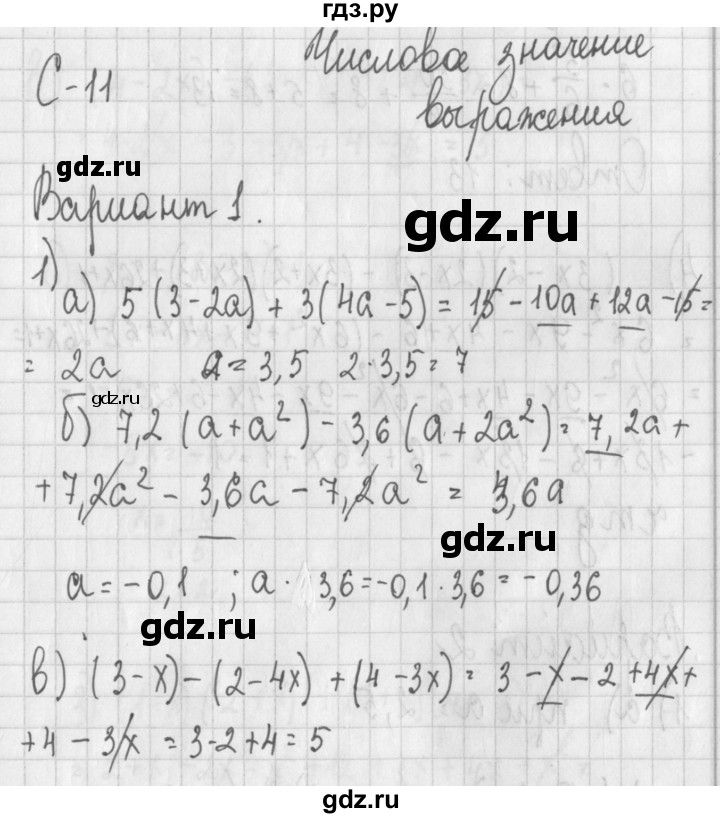 гдз.ру
С-11 Числовое значение
выражения
gdz.ru
Вариант 1.
gdz.ru
1)
а) 5 (3 - 2а) + 3(4а - 5) = 15 - 10а + 12а - 15 =
= 2а а = 3,5 2·3,5 = 7
gdz.ru
б) 7,2 (а + а²) - 3,6 (а + 2а²) = 7,2а +
+ 7,2а² - 3,6а - 7,2а² = 3,6а
gdz.ru
а = -0,1 ; а · 3,6 = -0,1 · 3,6 = -0,36
gdz.ru
в) (3 - х) - (2 - 4х) + (4 - 3х) = 3 - х - 2 + 4х +
+ 4 - 3х = 3 - 2 + 4 = 5
gdz.ru